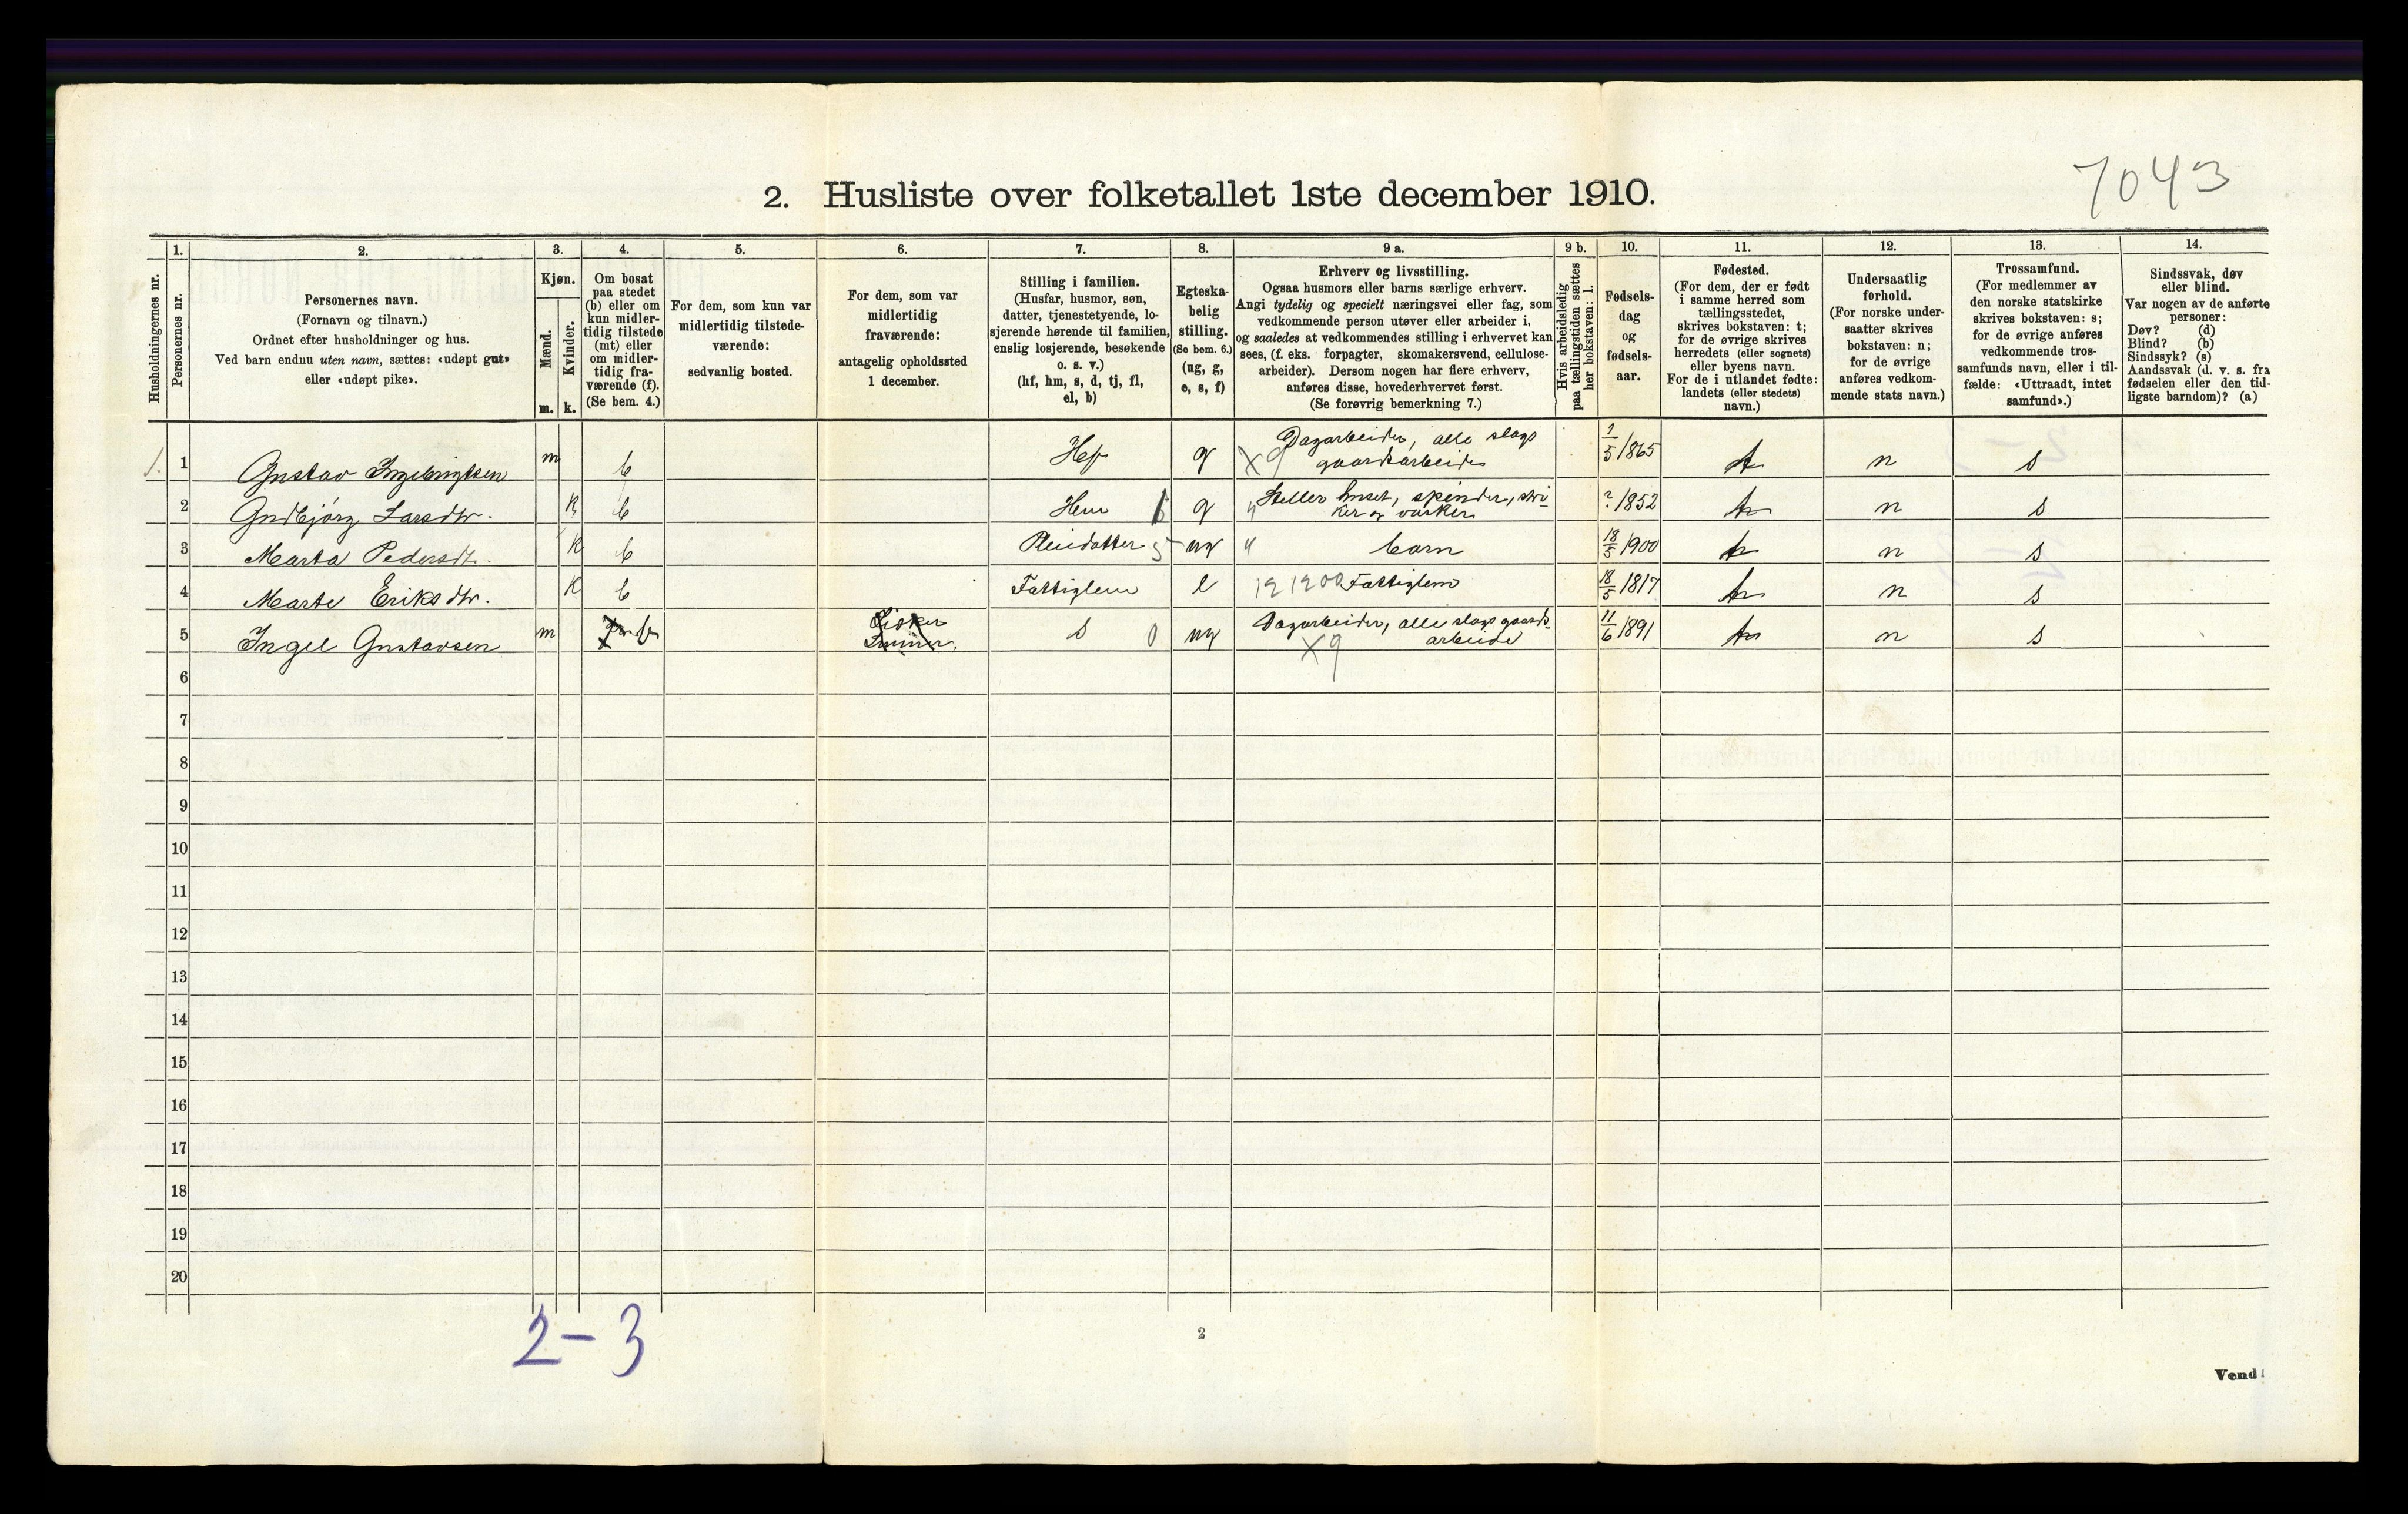 7043
2. Husliste over folketallet 1ste december 1910.
Husholdningernes nr.
1.
Personernes nr.
2.
Personernes navn.
(Fornavn og tilnavn.)
Ordnet efter husholdninger og hus.
Ved barn endnu uten navn, sættes: «udøpt gut»
eller «udøpt pike».
3.
Kjøn.
Mænd.
Kvinder.
m. k.
4.
Om bosat
paa stedet
(b) eller om
kun midler-
tidig tilstede
(mt) eller
om midler-
tidig fra-
værende (f).
(Se bem. 4.)
5.
For dem, som kun var
midlertidig tilstede-
værende:
sedvanlig bosted.
6.
For dem, som var
midlertidig
fraværende:
antagelig opholdssted
1 december.
7.
Stilling i familien.
(Husfar, husmor, søn,
datter, tjenestetyende, lo-
sjerende hørende til familien,
enslig losjerende, besøkende
o. s. v.)
(hf, hm, s, d, tj, fl,
el, b)
8.
Egteska-
belig
stilling.
(Se bem. 6.)
(ug, g,
e, s, f)
9 a.
Erhverv og livsstilling.
Ogsaa husmors eller barns særlige erhverv.
Angi tydelig og specielt næringsvei eller fag, som
vedkommende person utøver eller arbeider i,
og saaledes at vedkommendes stilling i erhvervet kan
sees, (f. eks. forpagter, skomakersvend, cellulose-
arbeider). Dersom nogen har flere erhverv,
anføres disse, hovederhvervet først.
(Se forøvrig bemerkning 7.)
9 b.
Hvis arbeidsledig
paa tællingstiden sættes
her bokstaven: l.
10.
Fødsels-
dag
og
fødsels-
aar.
11.
Fødested.
(For dem, der er født
i samme herred som
tællingsstedet,
skrives bokstaven: t;
for de øvrige skrives
herredets (eller sognets)
eller byens navn.
For de i utlandet fødte:
landets (eller stedets)
navn.)
12.
Undersaatlig
forhold.
(For norske under-
saatter skrives
bokstaven: n;
for de øvrige
anføres vedkom-
mende stats navn.)
13.
Trossamfund.
(For medlemmer av
den norske statskirke
skrives bokstaven: s;
for de øvrige anføres
vedkommende tros-
samfunds navn, eller i til-
fælde: «Uttraadt, intet
samfund».)
14.
Sindssvak, døv
eller blind.
Var nogen av de anførte
personer:
Døv? (d)
Blind? (b)
Sindssyk? (s)
Aandssvak (d. v. s. fra
fødselen eller den tid-
ligste barndom)? (a)
1. 1 Gustav Ingebrigtsen m b Hf g X9 Dagarbeider, alle slags gaardsarbeide 5/1865 t n s
2 Gudbjørg Larsdtr. k b Hm g " Steller huset, spinder, stri-
ker og vasker ? 1852 t n s
3 Marta Pedersdt. k b Pleiedatter 5 ug " barn 18/5 1900 t n s
4 Marte Eriksdtr. k b Fattiglem e 121200 Fattiglem 18/5 1817 t n s
5 Ingel Gustavsen m b s 0 ug Dagarbeider, alle slags gaards-
arbeide X9 11/6 1891 t n s
6
7
8
9
10
11
12
13
14
15
16
17
18
19
20
2-3
2
Vend!